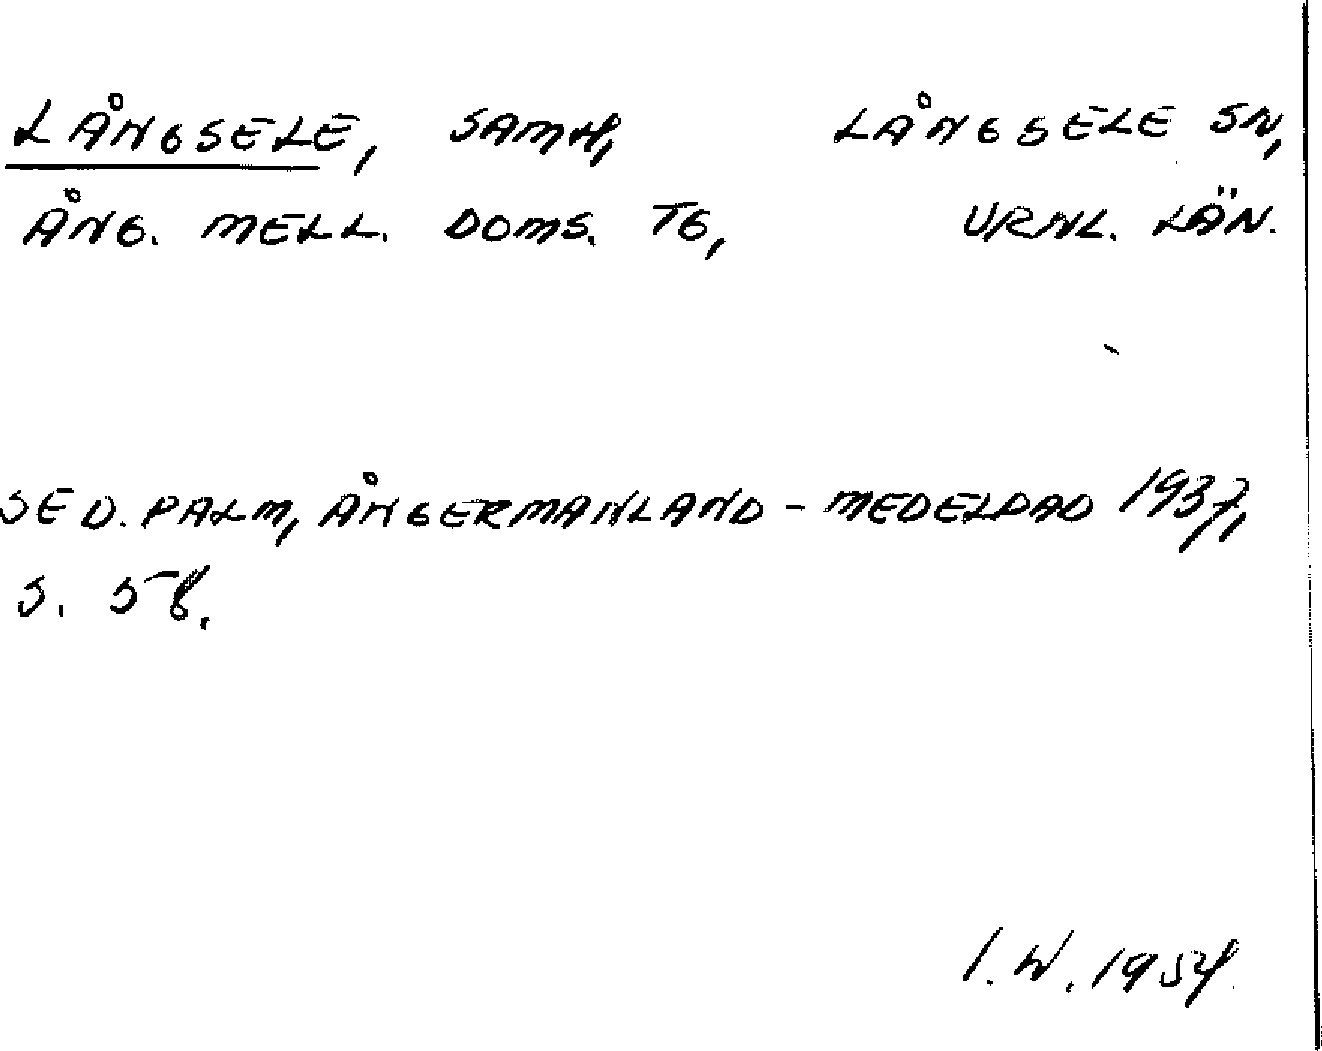 LÅNGSELE, SAMH, LÅNGSELE SN,
ÅNG. MELL. DOMS. TG, VRNL. LÄN.
SE D. PALM, ÅNGERMANLAND - MEDELPAD 1937,
S. 58.
I. W. 1954